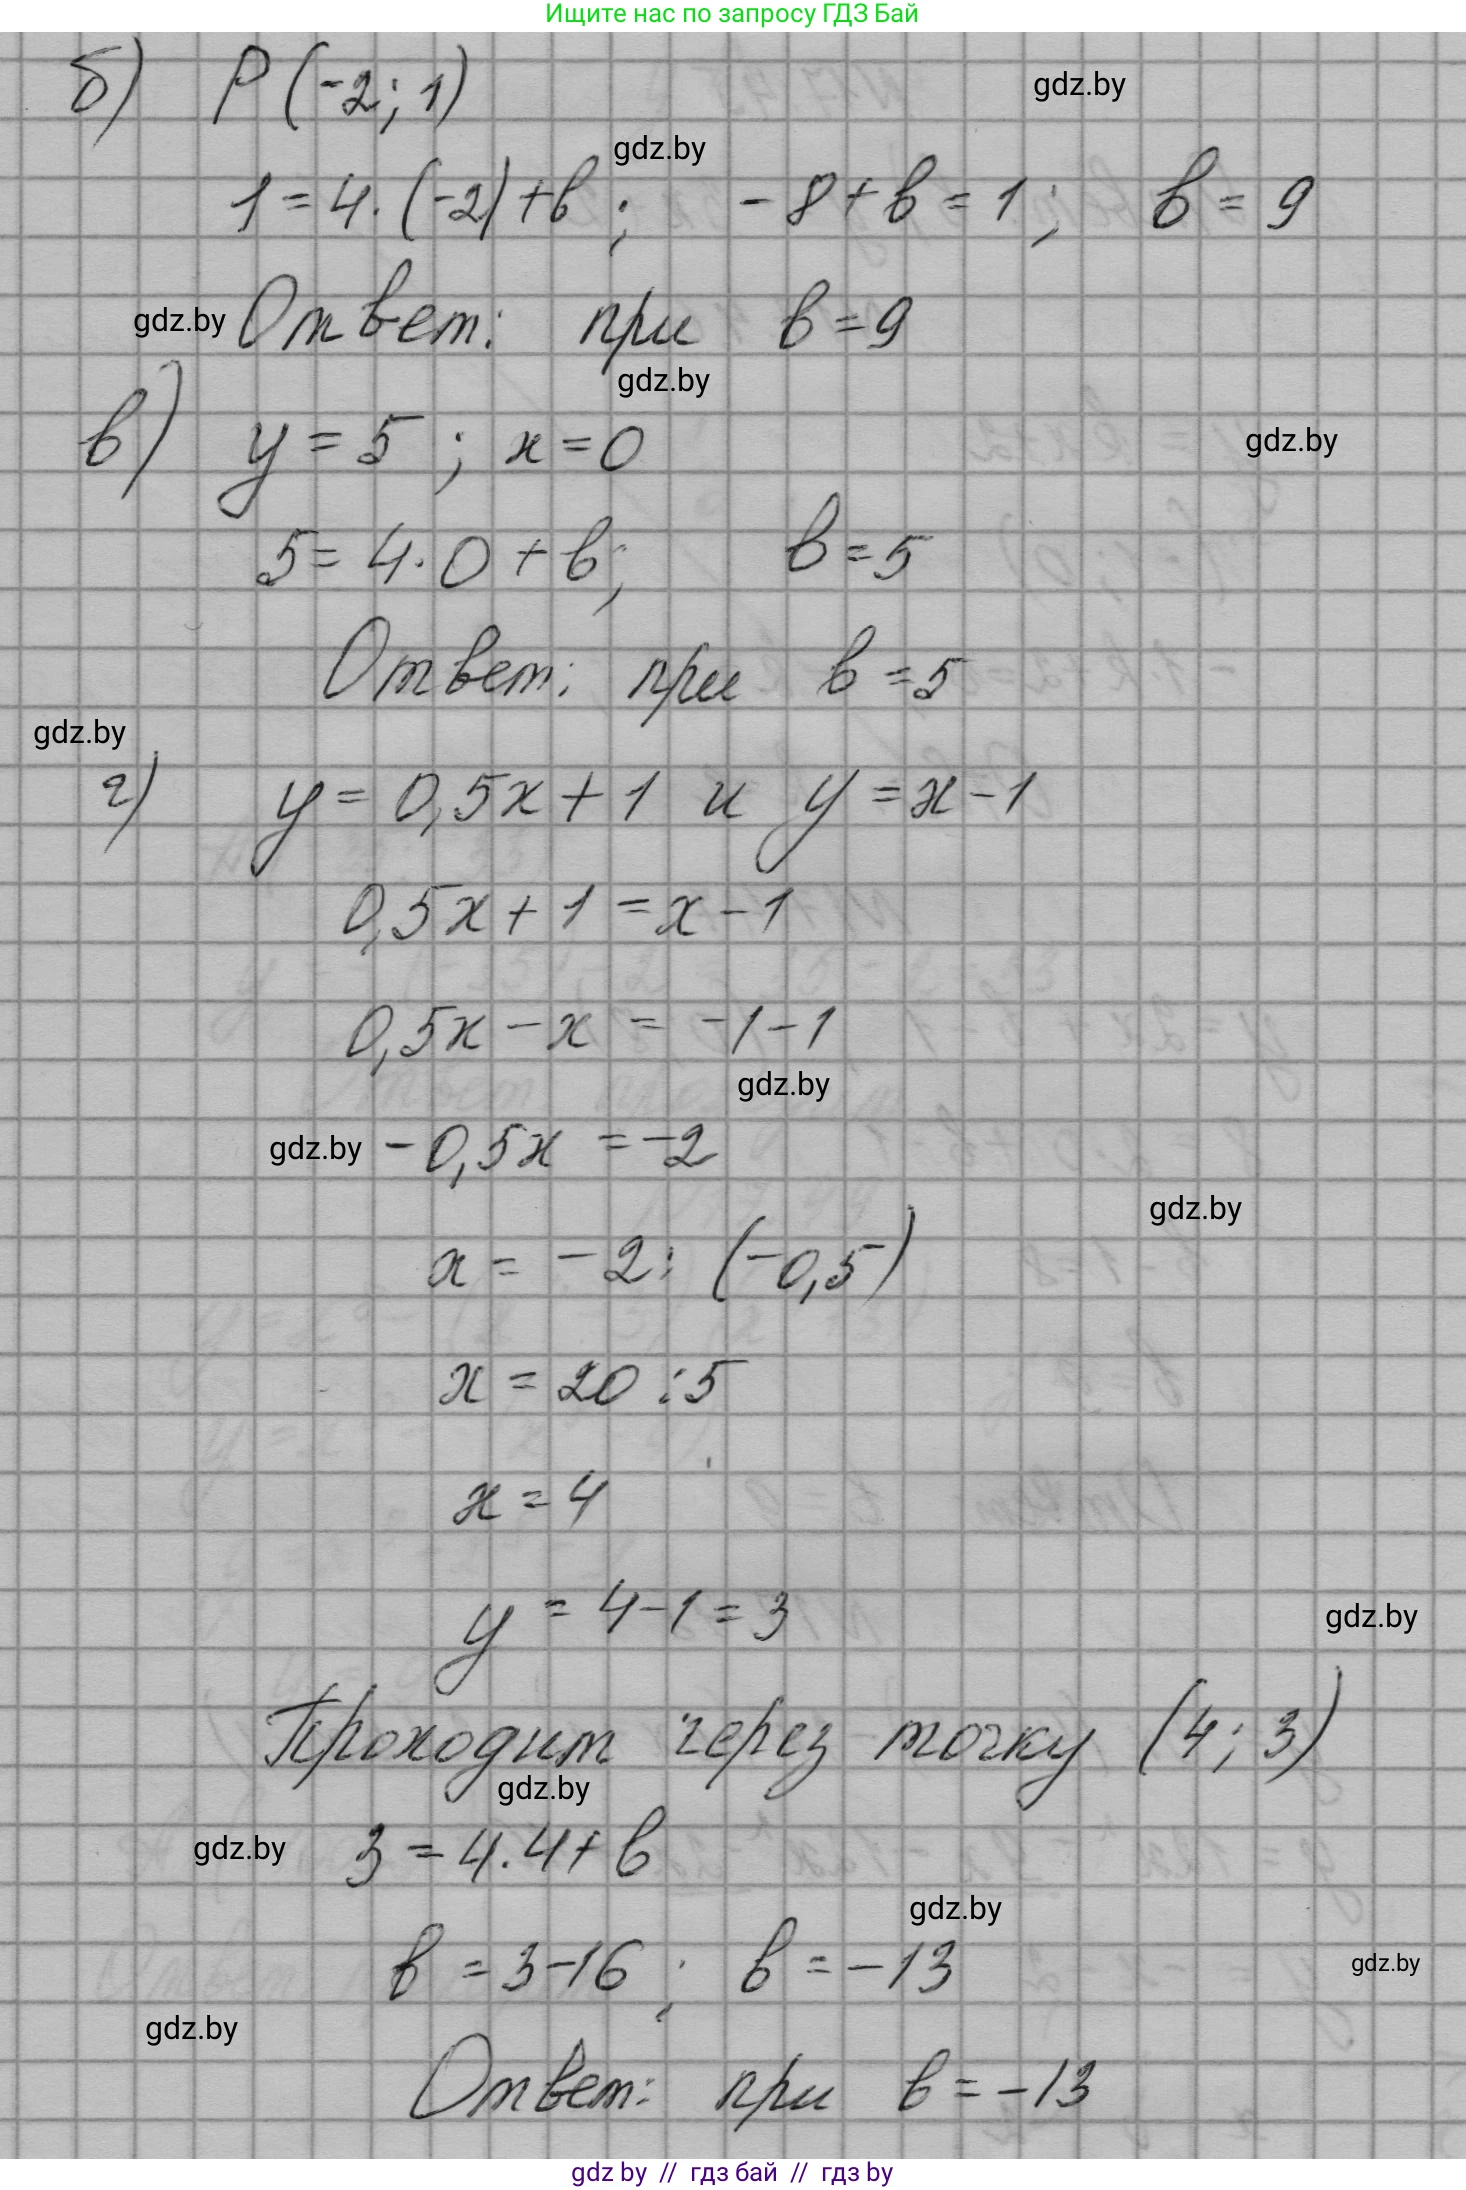 Ищите нас по запросу ГДЗ Бай
б) P (-2; 1)
gdz.by
gdz.by
1 = 4 · (-2) + b ; -8 + b = 1 ; b = 9
gdz.by Ответ: при b = 9
gdz.by
в) y = 5 ; x = 0
gdz.by
5 = 4 · 0 + b ; b = 5
Ответ: при b = 5
gdz.by
г) y = 0,5x + 1 и y = x - 1
0,5x + 1 = x - 1
0,5x - x = -1 - 1
gdz.by
gdz.by -0,5x = -2
gdz.by
x = -2 : (-0,5)
x = 20 : 5
x = 4
y = 4 - 1 = 3
gdz.by
Проходит через точку (4; 3)
gdz.by
gdz.by 3 = 4 · 4 + b
gdz.by
b = 3 - 16 ; b = -13
gdz.by
gdz.by
Ответ: при b = -13
gdz by // гдз бай // гдз by